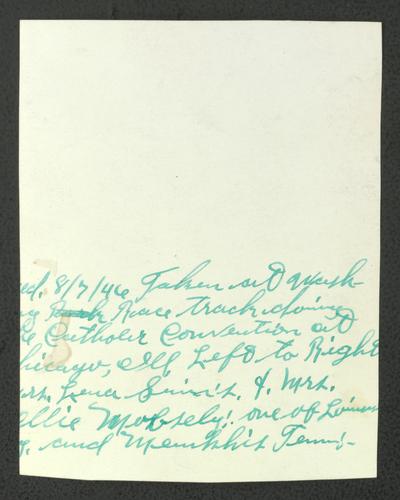 ed. 8/7/46 Taken at Wash-
Race track during
Catholic Convention at
hicago, Ill Left to Right
rs. Lena & Mrs.
ellie Mobsely. one of
and Memkhis Tenn-